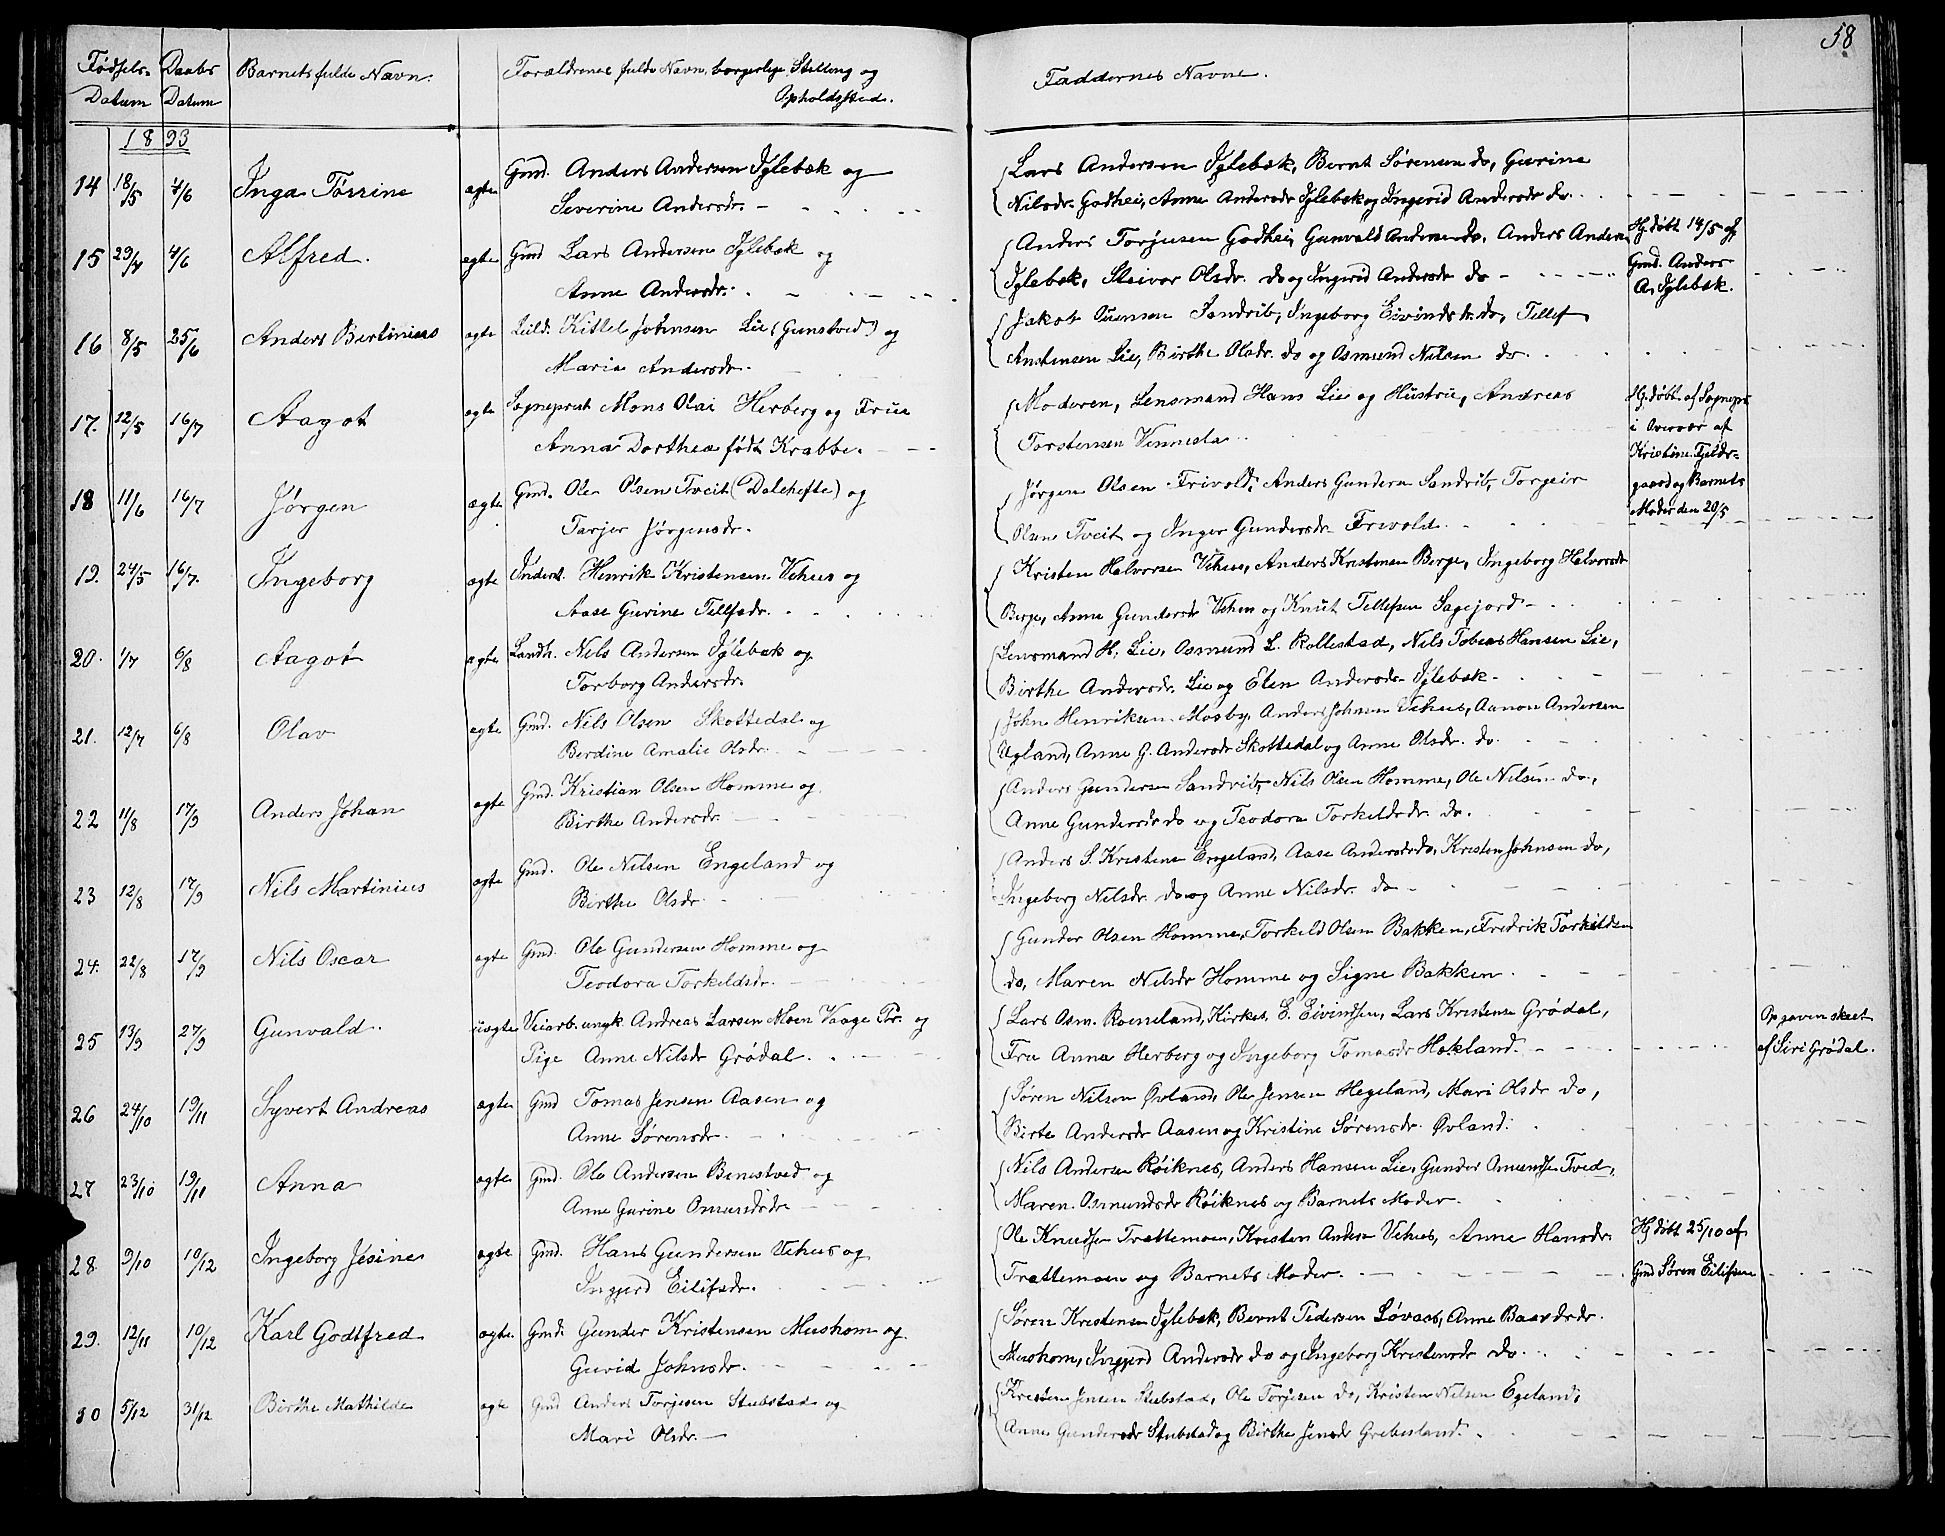 58
Fødsels- Daabs Barnets fulde Navn. Forældrenes fulde Navn, borgerlige Stilling og Faddernes Navne.
Datum Datum Opholdssted.
1893
14 18/5 4/6 Inga Tørrine ægte Gmd. Anders Andersen Iglebæk og Lars Andersen Iglebæk, Bernt Sørensen do, Gurine
Severine Andersdr. Nilsdr. Godhei, Anne Andersdr Iglebæk og Ingerid Andersdr do.
15 29/4 4/6 Alfred. ægte Gmd Lars Andersen Iglebæk og Anders Torjusen Godhei, Gunvald Andersen do, Anders Anders. Hj. døbt 14/5 af
Anne Andersdr. Iglebæk, Steivor Olsdr. do og Ingerid Andersdr do Gmd. Anders
A. Iglebæk.
16 8/5 25/6 Anders Bertinius ægte Leild. Kittel Johnsen Lie (Gunstved) og Jakob Sandrib, Ingeborg Eivindsdr. do, Tellef
Marie Andersdr. Anstensen Lie, Birthe Olsdr. do og Osmund Nilsen do.
17. 12/5 16/7 Aagot ægte Sogneprest Mons Olai Herberg og Frue Moderen, Lensmand Hans Lie og Hustru, Andreas Hj. døbt af Sognepr.
Anna Dorthea født Krabbe. Torstensen Vennesla i Overvær af
Kristine Fjelds-
gaard og Barnets
Moder den 20/5
18 11/6 16/7 Jørgen ægte Gmd. Ole Olsen Tveit (Dalehefte) og Jørgen Olsen Frivold, Anders Gunders. Sandrib, Torgeir
Tarjer Jørgensdr. Olsen Tveit og Inger Gundersdr Frivold.
19. 24/5 16/7. Ingeborg ægte Inderst. Henrik Kristensen Vehus og Kristen Halvorsen Vehus, Anders Kristensen Berge, Ingeborg Halvorsdr
Aase Gurine Tellfsdr. Berge, Anne Gundersdr Vehus og Knut Tellefsen Sagejord
20. 1/7 6/8 Aagot ægte Landh. Nils Andersen Iglebæk og Lensmand H. Lie, Osmund L. Rollestad, Nils Tobias Hansen Lie,
Torborg Andersdr. Birthe Andersdr. Lie og Elen Andersdr Iglebæk
21. 12/7 6/8 Olav ægte Gmd. Nils Olsen Skottedal og John Henriksen Mosby, Anders Johnsen Vehus, Aanon Andersen
Berdine Amalie Olsdr. Ugland, Anne G. Andersdr Skottedal og Anne Olsdr. do.
22 11/8 17/9 Anders Johan ægte Gmd. Kristian Olsen Homme og Anders Gundersen Sandrib, Nils Olsen Homme, Ole Nilsen do,
Birthe Andersdr. Anne Gundersdr do og Teodora Torkildsdr. do.
23 12/8 17/9 Nils Martinius ægte Gmd. Ole Nilsen Engeland og Anders S. Kristens. Engeland, Aase Andersdr do, Kristen Johnsen do,
Birthe Olsdr. Ingeborg Nilsdr. do og Anne Nilsdr. do
24. 22/8 17/9 Nils Oscar ægte Gmd. Ole Gundersen Homme og Gunder Olsen Homme, Torkild Olsen Bakken, Fredrik Torkildsen
Teodora Torkildsdr. do, Maren Nilsdr Homme og Signe Bakken
25 13/9 27/9 Gunvald. uægte Veiarb. ungk. Andreas Larsen Moen Vaage Pr. og Lars Osm. Roeneland, Kirkes. E. Eivindsen, Lars Kristens. Grødal, Opgaven skeet
Pige Anne Nilsdr Grødal. Fru Anna Herberg og Ingeborg Tomasdr Hokland. af Siri Grødal.
26 24/10 19/11 Syvert Andreas ægte Gmd Tomas Jensen Aasen og Søren Nilsen Øvland, Ole Jensen Hegeland, Mari Olsdr do,
Anne Sørensdr. Birte Andersdr Aasen og Kristine Sørensdr. Øvland.
27 23/10 19/11 Anna ægte Gmd. Ole Andersen Benestved og Nils Andersen Røiknes, Anders Hansen Lie, Gunder Omundsen Tved,
Anne Gurine Omundsdr. Maren Osmundsdr Røiknes og Barnets Moder.
28. 9/10 10/12 Ingeborg Jesine ægte Gmd. Hans Gundersen Vehus og Ole Knudsen Trættemoen, Kristen Anders. Vehus, Anne Hansdr. Hj døbt 25/10 af
Ingjerd Eilifsdr. Trættemoen og Barnets Moder. Gmd Søren Eilifsen
29. 12/11 10/12 Karl Godtfred ægte. Gmd. Gunder Kristensen Mushom og Søren Kristensen Iglebæk, Bernt Pedersen Løvaas, Anne Baardsdr.
Gurid Johnsdr. Mushom, Ingjerd Andersdr do og Ingeborg Kristensdr do.
30 5/12 31/12 Birthe Mathilde ægte Gmd Anders Torjesen Stubstad og Kristen Jensen Stubstad, Ole Torjesen do, Kristen Nilsen Egeland,
Mari Olsdr. Anne Gundersdr Stubstad og Birthe Jensdr Grebesland.